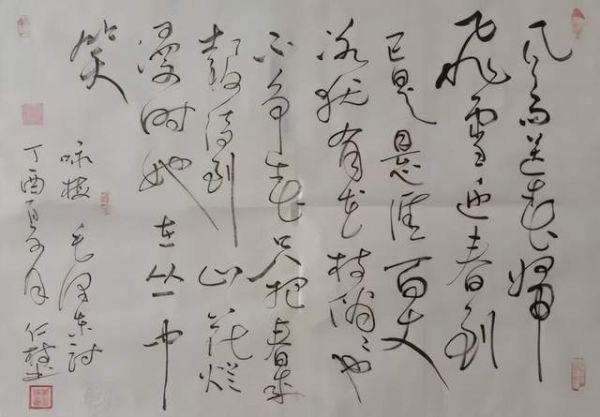 风雨送春歸
飛雪迎春到
已是悬崖百丈
冰犹有花枝俏〻也
不争春只把春来
報待到山花烂
漫时她在丛中
笑
咏梅 毛泽东詩
丁酉 月 仁